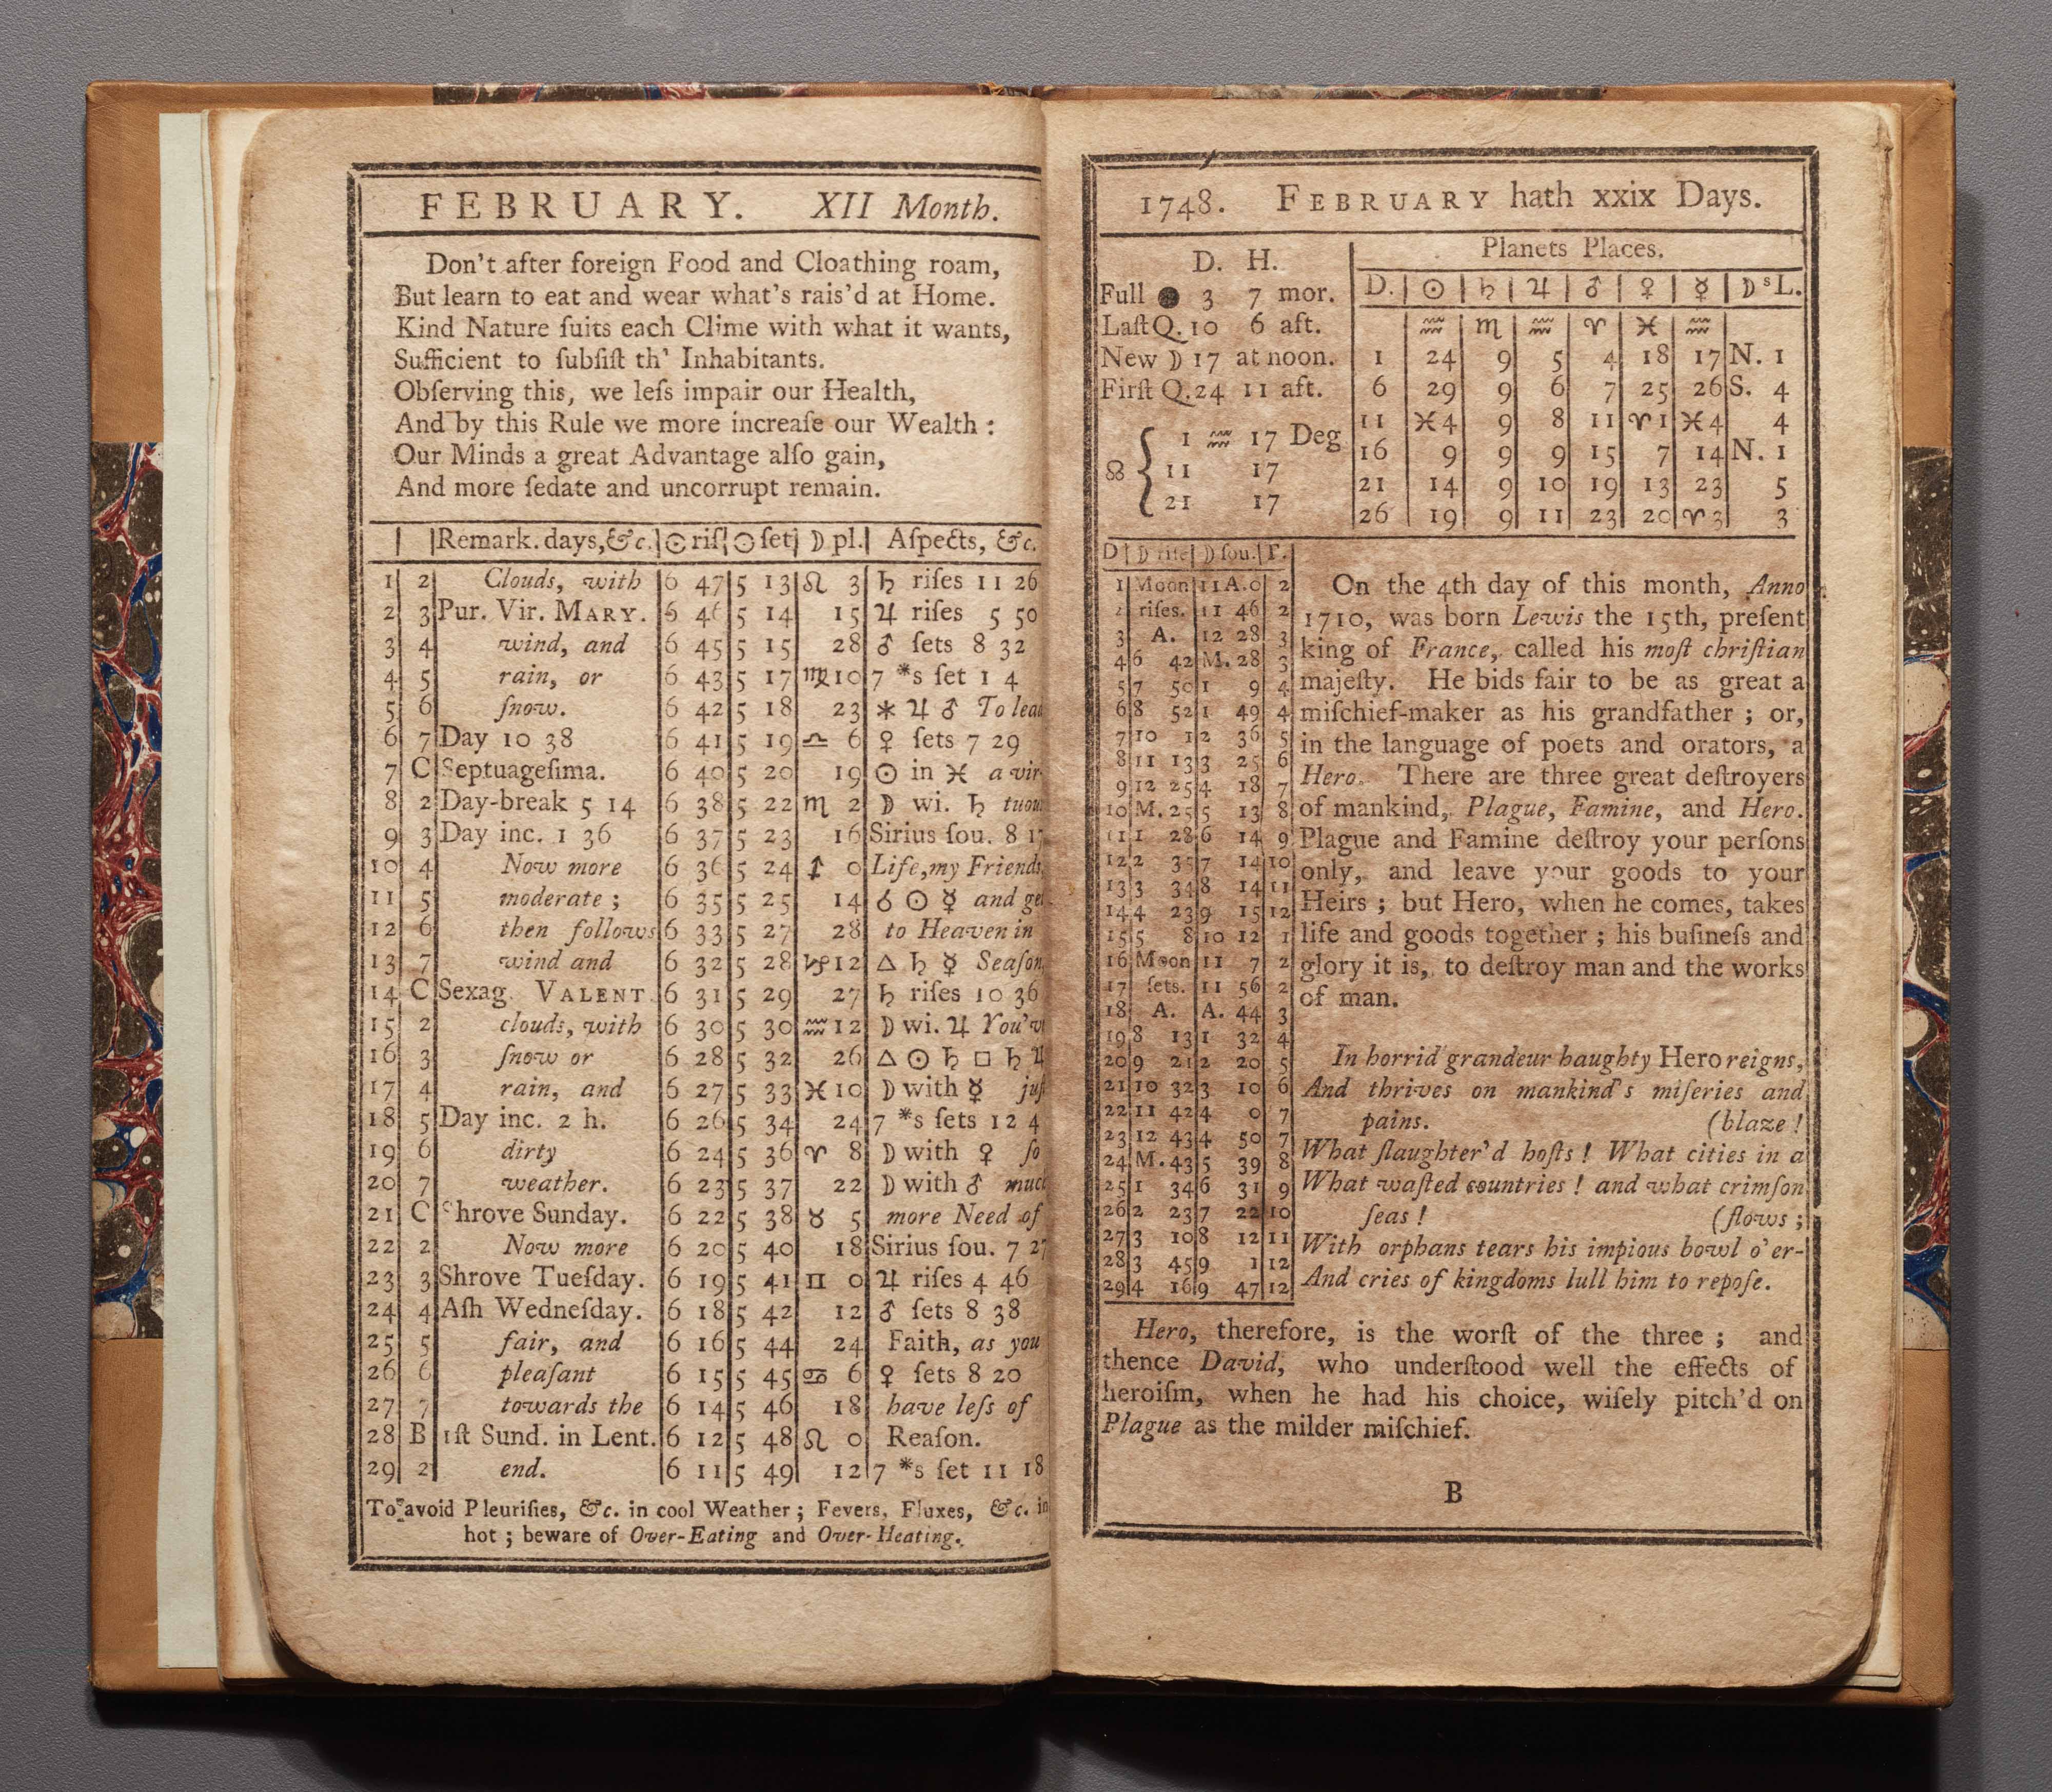 FEBRUARY. XII Month.
Don't after foreign Food and Cloathing roam,
But learn to eat and wear what's rais'd at Home.
Kind Nature ſuits each Clime with what it wants,
Sufficient to ſubſiſt th' Inhabitants.
Obſerving this, we leſs impair our Health,
And by this Rule we more increaſe our Wealth :
Our Minds a great Advantage alſo gain,
And more ſedate and uncorrupt remain.
Remark. days, &c. ☉ riſ ☉ ſet ☽ pl. Aſpects, &c.
1 2 Clouds, with 6 47 5 13 ♌ 3 ♄ riſes 11 26
2 3 Pur. Vir. MARY. 6 46 5 14 15 ♃ riſes 5 50
3 4 wind, and 6 45 5 15 28 ♂ ſets 8 32
4 5 rain, or 6 43 5 17 ♍ 10 7 *s ſet 1 4
5 6 ſnow. 6 42 5 18 23 ⚹ ♃ ♂ To lead
6 7 Day 10 38 6 41 5 19 ♎ 6 ♀ ſets 7 29
7 C Septuageſima. 6 40 5 20 19 ☉ in ♓ a vir-
8 2 Day-break 5 14 6 38 5 22 ♏ 2 ☽ wi. ♄ tuou
9 3 Day inc. 1 36 6 37 5 23 16 Sirius ſou. 8 17
10 4 Now more 6 36 5 24 ♐ 0 Life, my Friends,
11 5 moderate ; 6 35 5 25 14 ☌ ☉ ☿ and get
12 6 then follows 6 33 5 27 28 to Heaven in
13 7 wind and 6 32 5 28 ♑ 12 △ ♄ ☿ Seaſon,
14 C Sexag. VALENT. 6 31 5 29 27 ♄ riſes 10 36
15 2 clouds, with 6 30 5 30 ♒ 12 ☽ wi. ♃ You'v
16 3 ſnow or 6 28 5 32 26 △ ☉ ♄ □ ♄ ♃
17 4 rain, and 6 27 5 33 ♓ 10 ☽ with ☿ juſ
18 5 Day inc. 2 h. 6 26 5 34 24 7 *s ſets 12 4
19 6 dirty 6 24 5 36 ♈ 8 ☽ with ♀ ſo
20 7 weather. 6 23 5 37 22 ☽ with ♂ much
21 C Shrove Sunday. 6 22 5 38 ♉ 5 more Need of
22 2 Now more 6 20 5 40 18 Sirius ſou. 7 27
23 3 Shrove Tueſday. 6 19 5 41 ♊ 0 ♃ riſes 4 46
24 4 Aſh Wedneſday. 6 18 5 42 12 ♂ ſets 8 38
25 5 fair, and 6 16 5 44 24 Faith, as you
26 6 pleaſant 6 15 5 45 ♋ 6 ♀ ſets 8 20
27 7 towards the 6 14 5 46 18 have leſs of
28 B 1ſt Sund. in Lent. 6 12 5 48 ♌ 0 Reaſon.
29 2 end. 6 11 5 49 12 7 *s ſet 11 18
To avoid Pleuriſies, &c. in cool Weather ; Fevers, Fluxes, &c. in
hot ; beware of Over-Eating and Over-Heating.
1748. FEBRUARY hath xxix Days.
D. H.
Full ● 3 7 mor.
Laſt Q. 10 6 aft.
New ☽ 17 at noon.
Firſt Q. 24 11 aft.
☊ { 1 ♒ 17 Deg
11 17
21 17
Planets Places.
D. ☉ ♄ ♃ ♂ ♀ ☿ ☽sL.
♒ ♏ ♒ ♈ ♓ ♒
1 24 9 5 4 18 17 N. 1
6 29 9 6 7 25 26 S. 4
11 ♓4 9 8 11 ♈1 ♓4 4
16 9 9 9 15 7 14 N. 1
21 14 9 10 19 13 23 5
26 19 9 11 23 20 ♈3 3
D ☽ riſe ☽ ſou. T.
1 Moon 11 A. 0 2
2 riſes. 11 46 2
3 A. 12 28 3
4 6 42 M. 28 3
5 7 50 1 9 4
6 8 52 1 49 4
7 10 1 2 36 5
8 11 13 3 25 6
9 12 25 4 18 7
10 M. 25 5 13 8
11 1 28 6 14 9
12 2 35 7 14 10
13 3 34 8 14 11
14 4 23 9 15 12
15 5 8 10 12 1
16 Moon 11 7 2
17 ſets. 11 56 2
18 A. A. 44 3
19 8 13 1 32 4
20 9 21 2 20 5
21 10 32 3 10 6
22 11 42 4 0 7
23 12 43 4 50 7
24 M. 43 5 39 8
25 1 34 6 31 9
26 2 23 7 22 10
27 3 10 8 12 11
28 3 45 9 1 12
29 4 16 9 47 12
On the 4th day of this month, Anno
1710, was born Lewis the 15th, preſent
king of France, called his moſt chriſtian
majeſty. He bids fair to be as great a
miſchief-maker as his grandfather ; or,
in the language of poets and orators, a
Hero. There are three great deſtroyers
of mankind, Plague, Famine, and Hero.
Plague and Famine deſtroy your perſons
only, and leave your goods to your
Heirs ; but Hero, when he comes, takes
life and goods together ; his buſineſs and
glory it is, to deſtroy man and the works
of man.
In horrid grandeur haughty Hero reigns,
And thrives on mankind's miſeries and
pains. (blaze !
What ſlaughter'd hoſts ! What cities in a
What waſted countries ! and what crimſon
ſeas ! (flows ;
With orphans tears his impious bowl o'er-
And cries of kingdoms lull him to repoſe.
Hero, therefore, is the worſt of the three ; and
thence David, who underſtood well the effects of
heroiſm, when he had his choice, wiſely pitch'd on
Plague as the milder miſchief.
B